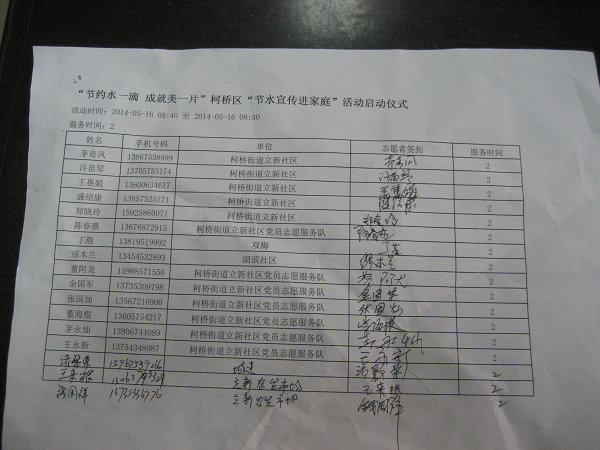 “节约水一滴 成就美一片”柯桥区“节水宣传进家庭”活动启动仪式
活动时间：2014-05-16 08:40 至 2014-05-16 08:40
服务时间：2
姓名 手机号码 单位 志愿者签到 服务时间
茅奇凤 13867538999 柯桥街道立新社区 2
许苗琴 13705753174 柯桥街道立新社区 2
王惠娟 13600634617 柯桥街道立新社区 2
盛绍康 13857525171 柯桥街道立新社区 2
郑晓玲 15925860071 柯桥街道立新社区 郑晓玲 2
陈春燕 13676872915 柯桥街道立新社区党员志愿服务队 陈春燕 2
丁燕 13819519992 双梅 丁燕 2
木兰 13454532893 湖滨社区 2
董阿龙 15968571556 柯桥街道立新社区党员志愿服务队 2
金国军 13735309798 柯桥街道立新社区党员志愿服务队 金国军 2
张国灿 13567210900 柯桥街道立新社区党员志愿服务队 张国灿 2
董海根 13605754217 柯桥街道立新社区党员志愿服务队 2
茅永灿 13806744089 柯桥街道立新社区党员志愿服务队 2
王永新 13754348087 柯桥街道立新社区党员志愿服务队 王永新 2
城建 2
立新农生市场 2
立新农生市场 2